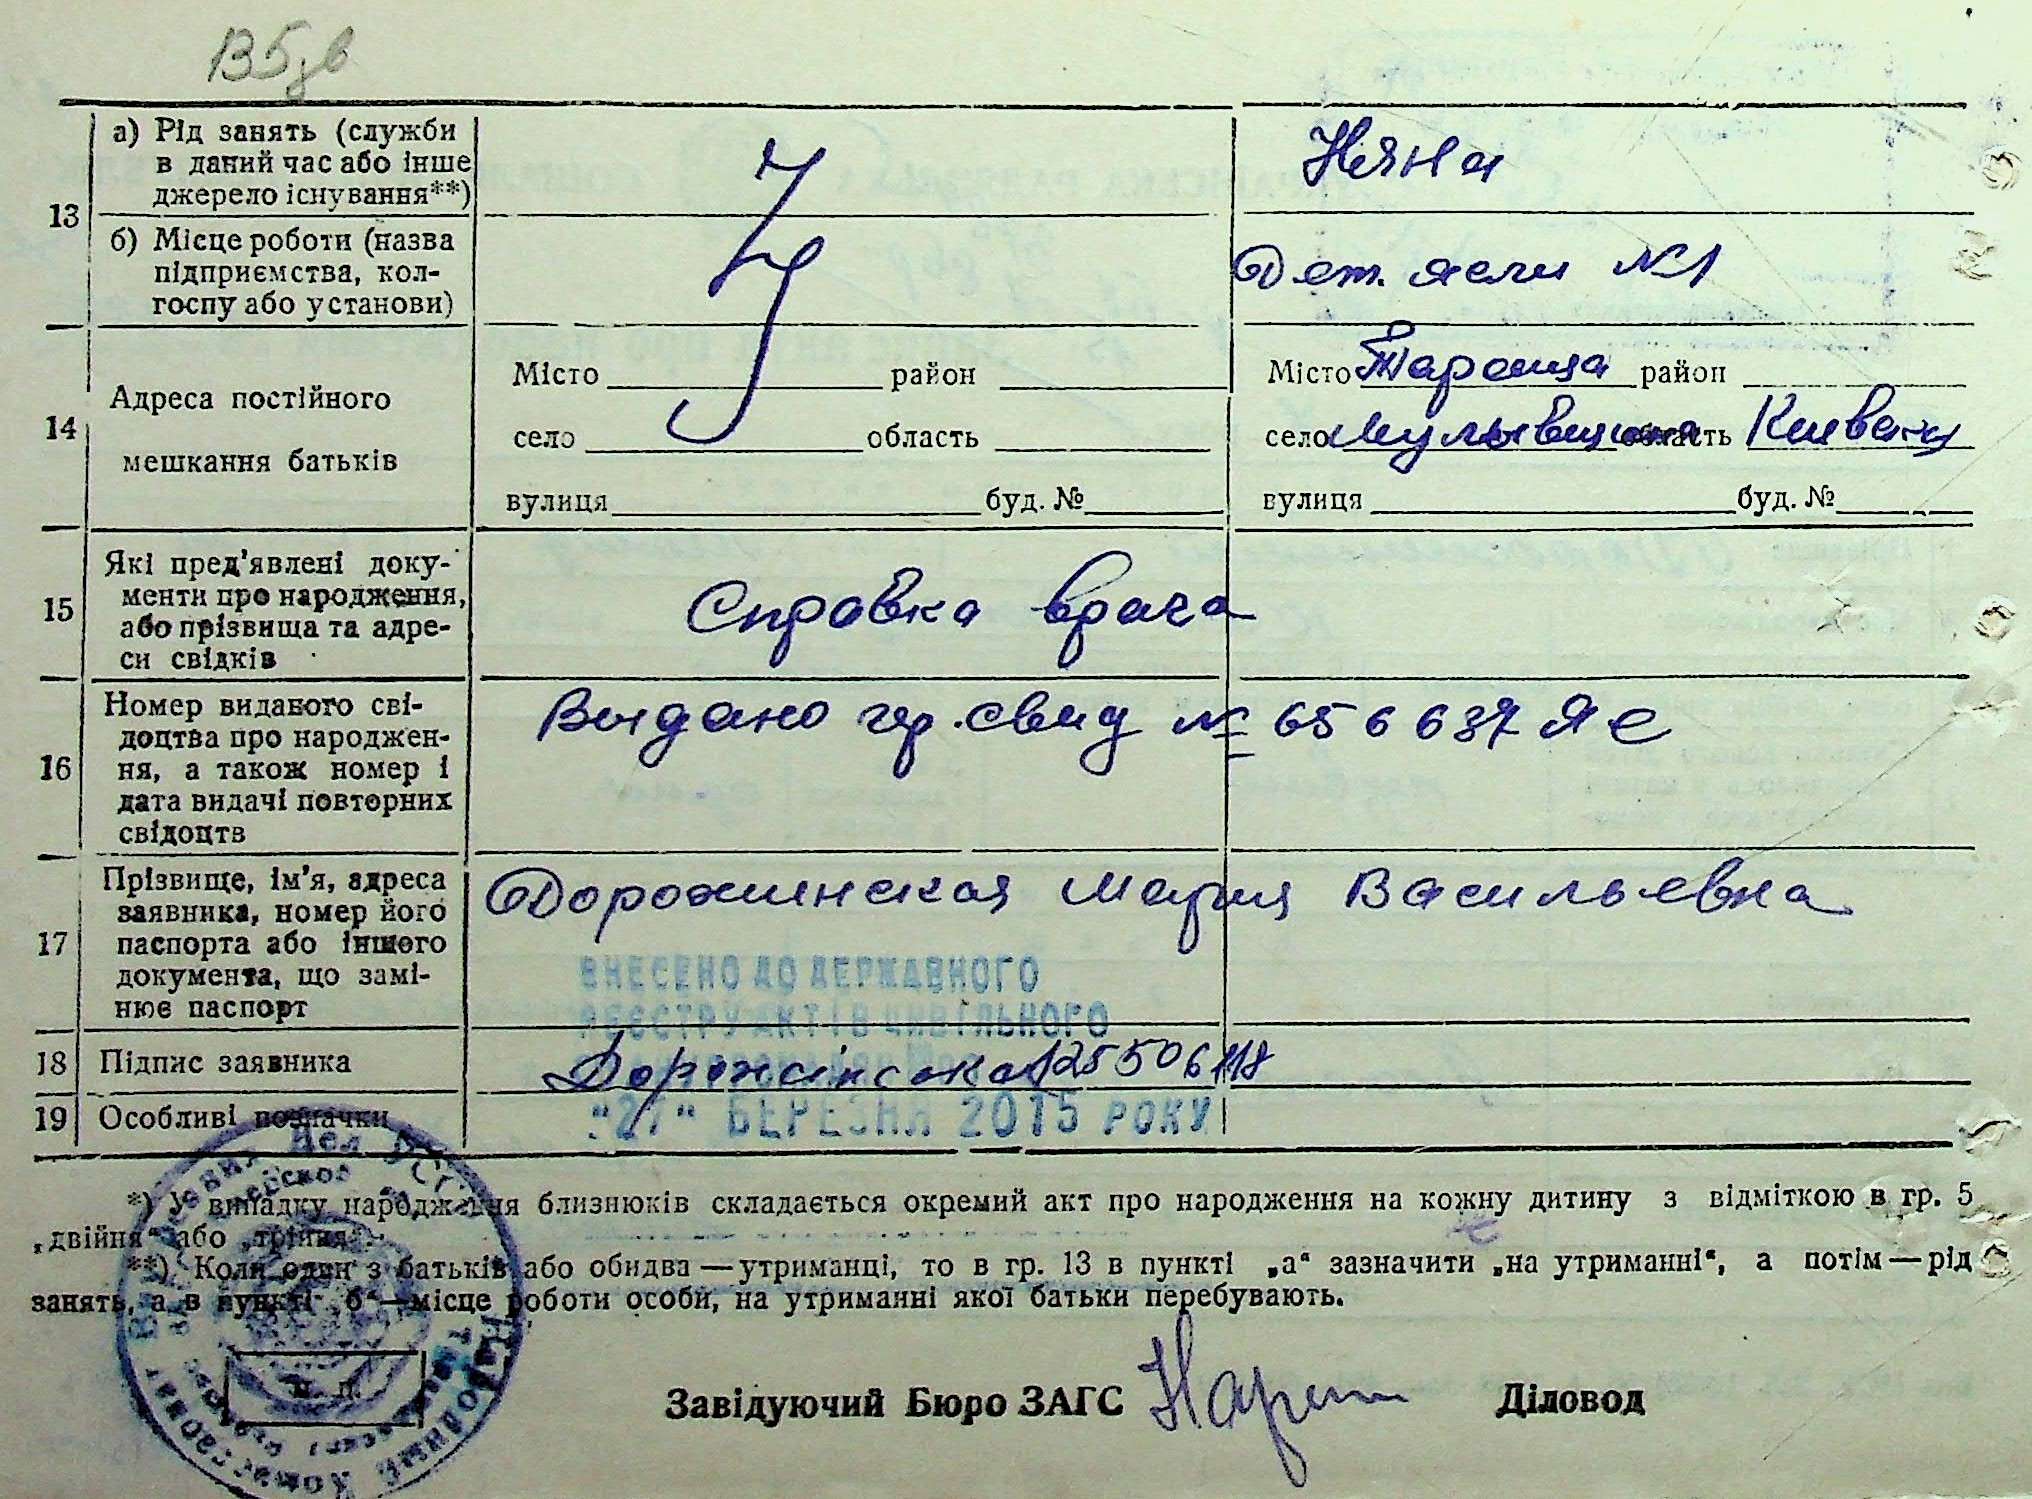 13
а) Рід занять (служби
в даний час або інше
джерело існування**)
Няня
б) Місце роботи (назва
підприємства, кол-
госпу або установи)
Дет. ясли №1
14
Адреса постійного
мешкання батьків
Місто район
село область
вулиця буд. №
Місто Тараща район
село область Киевск
вулиця буд. №
15
Які пред'явлені доку-
менти про народження,
або прізвища та адре-
си свідків
Справка врача
16
Номер виданого сві-
доцтва про народжен-
ня, а також номер і
дата видачі повторних
свідоцтв
Выдано гр. свид № 656637 ЯС
17
Прізвище, ім'я, адреса
заявника, номер його
паспорта або іншого
документа, що замі-
нює паспорт
Дорожинская Мария Васильевна
ВНЕСЕНО ДО ДЕРЖАВНОГО
РЕЄСТРУ АКТІВ ЦИВІЛЬНОГО
18 Підпис заявника
Дорожінська
19 Особливі позначки
"27" БЕРЕЗНЯ 2015 РОКУ
*) У випадку народження близнюків складається окремий акт про народження на кожну дитину з відміткою в гр. 5
„двійня“ або „трійня“.
**) Коли один з батьків або обидва — утриманці, то в гр. 13 в пункті „а“ зазначити „на утриманні“, а потім — рід
занять, а в пункті „б“ — місце роботи особи, на утриманні якої батьки перебувають.
М. П.
Завідуючий Бюро ЗАГС Діловод